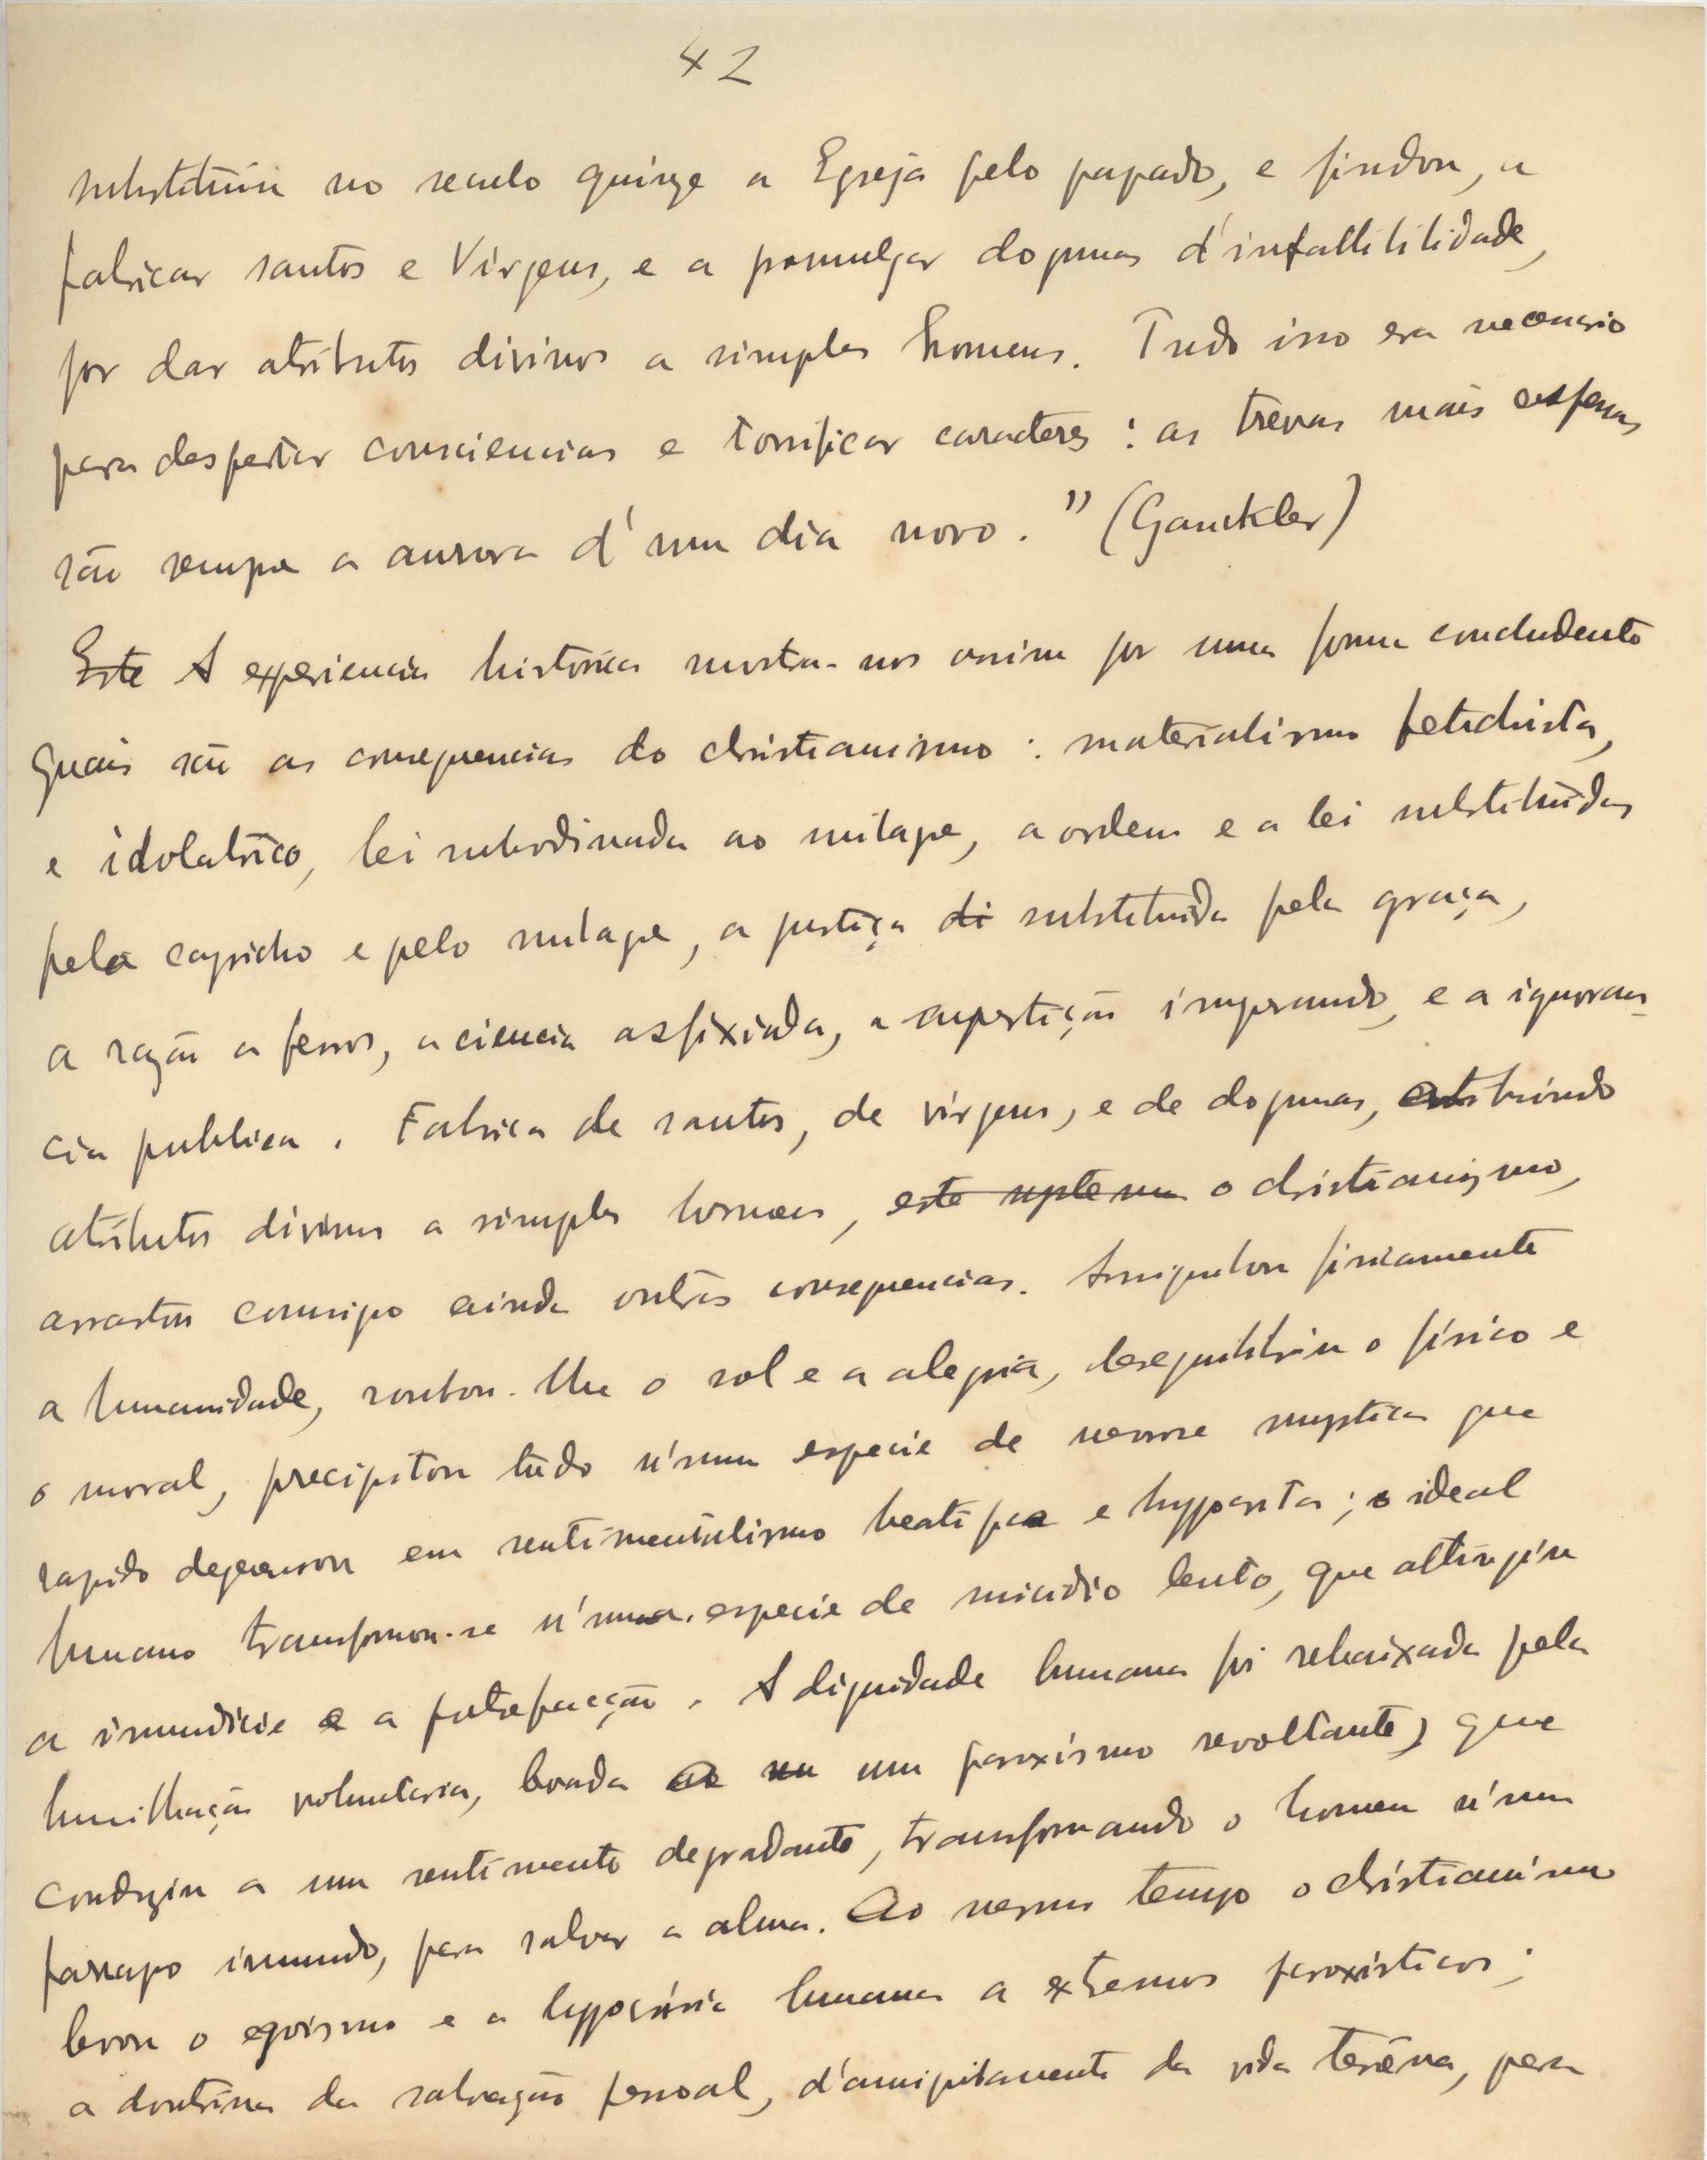 42
substituiu no seculo quinze a Egreja pelo papado, e findou, a
fabricar santos e Virgens, e a promulgar dogmas d'infallibilidade,
por dar atributos divinos a simples homens. Tudo isso era necessario
para despertar consciencias e tonificar caracteres: as trevas mais espessas
são sempre a aurora d'um dia novo." (Gauckler)
Este A experiencia historica mostra-nos assim por uma forma concludente
quais são as consequencias do christianismo: materialismo fetichista,
e idolatrico, lei subordinada ao milagre, a ordem e a lei substituidas
pelo capricho e pelo milagre, a justiça di substituida pela graça,
a razão a ferros, a ciencia asfixiada, a superstição imperando, e a ignoran-
cia publica. Fabrica de santos, de virgens, e de dogmas, atribuindo
atributos divinos a simples homens, este systema o christianismo,
arrastou comsigo ainda outras consequencias. Aniquilou fisicamente
a humanidade, roubou-lhe o sol e a alegria, desequilibriu o físico e
o moral, precipitou tudo n'uma especie de nevrose mystica que
rapido degenerou em sentimentalismo beatifico e hypocrita; o ideal
humano transformou-se n'uma especie de suicidio lento, que attingiu
a imundicie e a putrefacção. A dignidade humana foi rebaixada pela
humilhação voluntaria, levada a um paroxismo revoltante, que
conduziu a um sentimento degradante, transformando o homem n'um
farrapo imundo, para salvar a alma. Ao mesmo tempo o christianismo
levou o egoismo e a hypocrisia humana a extremos paroxisticos;
a doutrina da salvação pessoal, d'aniquilamento da vida terrena, para